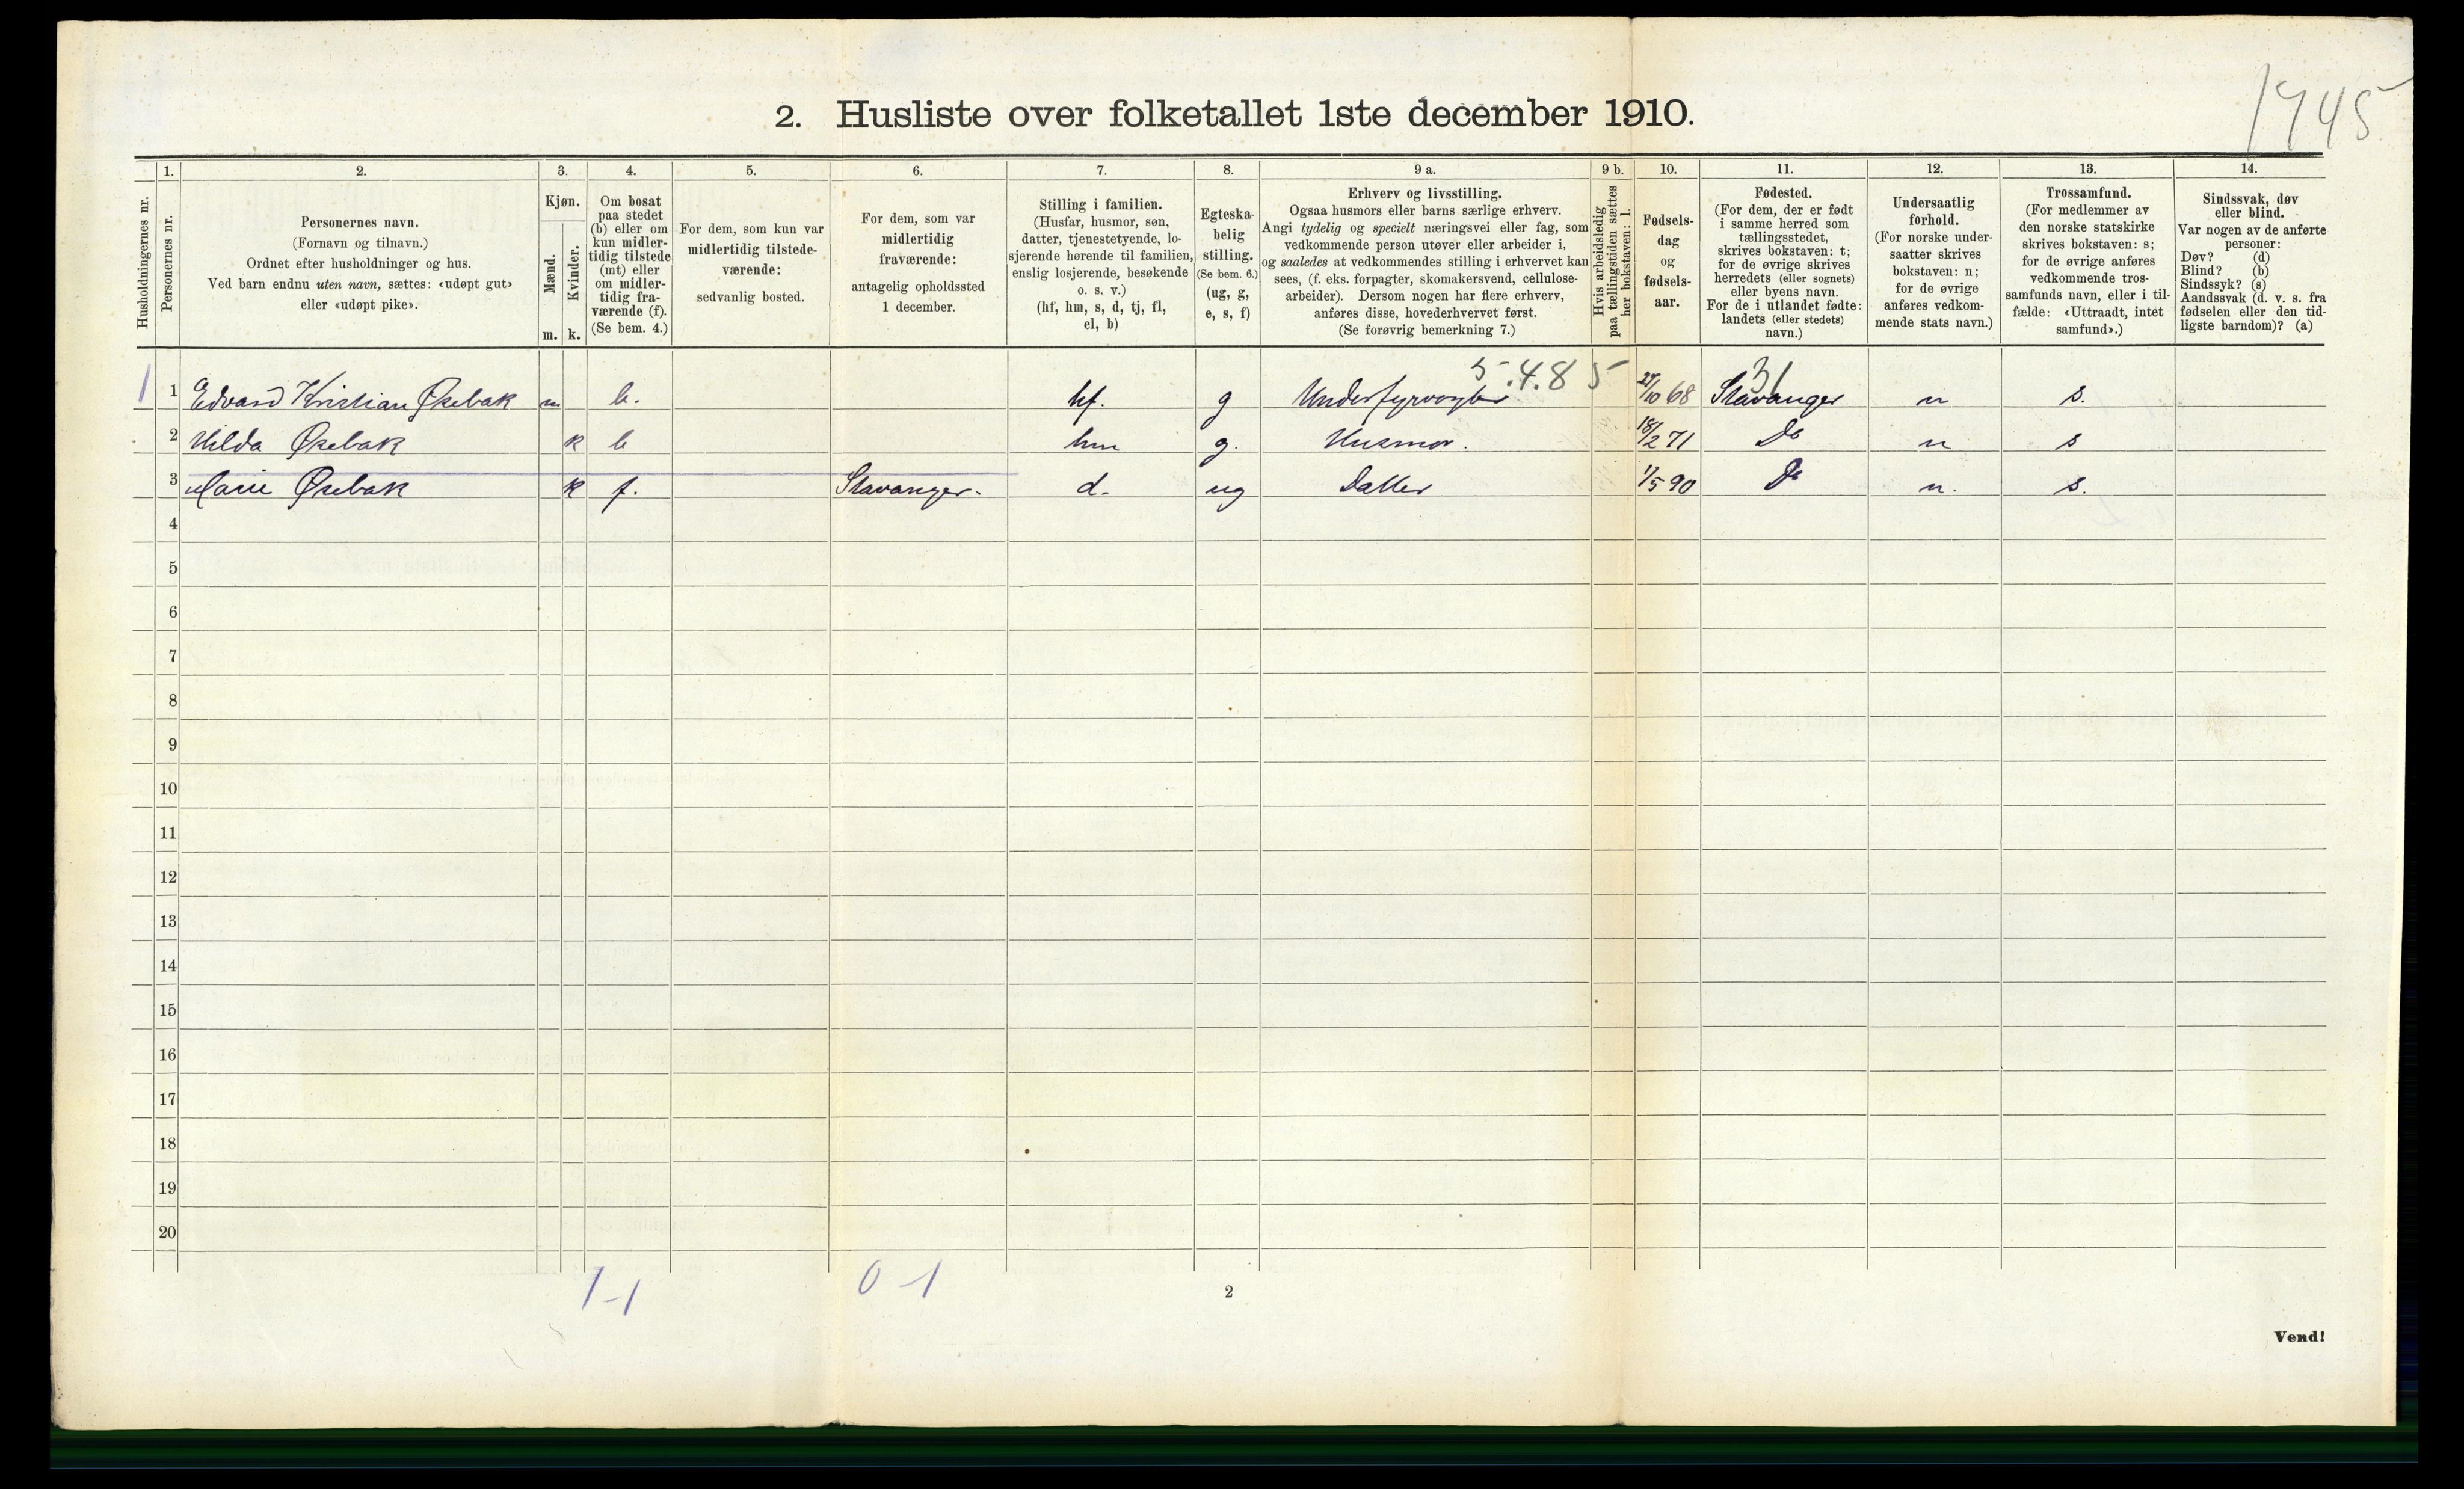 1745
2. Husliste over folketallet 1ste december 1910.
1. 2. 3. 4. 5. 6. 7. 8. 9 a. 9 b. 10. 11. 12. 13. 14.
Husholdningernes nr.
Personernes nr.
Personernes navn.
(Fornavn og tilnavn.)
Ordnet efter husholdninger og hus.
Ved barn endnu uten navn, sættes: «udøpt gut»
eller «udøpt pike».
Kjøn.
Mænd.
Kvinder.
m. k.
Om bosat
paa stedet
(b) eller om
kun midler-
tidig tilstede
(mt) eller
om midler-
tidig fra-
værende (f).
(Se bem. 4.)
For dem, som kun var
midlertidig tilstede-
værende:
sedvanlig bosted.
For dem, som var
midlertidig
fraværende:
antagelig opholdssted
1 december.
Stilling i familien.
(Husfar, husmor, søn,
datter, tjenestetyende, lo-
sjerende hørende til familien,
enslig losjerende, besøkende
o. s. v.)
(hf, hm, s, d, tj, fl,
el, b)
Egteska-
belig
stilling.
(Se bem. 6.)
(ug, g,
e, s, f)
Erhverv og livsstilling.
Ogsaa husmors eller barns særlige erhverv.
Angi tydelig og specielt næringsvei eller fag, som
vedkommende person utøver eller arbeider i,
og saaledes at vedkommendes stilling i erhvervet kan
sees, (f. eks. forpagter, skomakersvend, cellulose-
arbeider). Dersom nogen har flere erhverv,
anføres disse, hovederhvervet først.
(Se forøvrig bemerkning 7.)
Hvis arbeidsledig
paa tællingstiden sættes
her bokstaven: l.
Fødsels-
dag
og
fødsels-
aar.
Fødested.
(For dem, der er født
i samme herred som
tællingsstedet,
skrives bokstaven: t;
for de øvrige skrives
herredets (eller sognets)
eller byens navn.
For de i utlandet fødte:
landets (eller stedets)
navn.)
Undersaatlig
forhold.
(For norske under-
saatter skrives
bokstaven: n;
for de øvrige
anføres vedkom-
mende stats navn.)
Trossamfund.
(For medlemmer av
den norske statskirke
skrives bokstaven: s;
for de øvrige anføres
vedkommende tros-
samfunds navn, eller i til-
fælde: «Uttraadt, intet
samfund».)
Sindssvak, døv
eller blind.
Var nogen av de anførte
personer:
Døv? (d)
Blind? (b)
Sindssyk? (s)
Aandssvak (d. v. s. fra
fødselen eller den tid-
ligste barndom)? (a)
5.4.8 5 31
1 1 Edvard Kristian Øsebak m b. hf. g Underfyrvogter /10 68 Stavanger n s.
2 Hilda Øsebak k b hm g. Husmor. 18/2 71 Do n s
3 Marie Øsebak k f. Stavanger. d. ug Datter 1/5 90 Do n. s.
4
5
6
7
8
9
10
11
12
13
14
15
16
17
18
19
20
1-1 0-1
2
Vend!